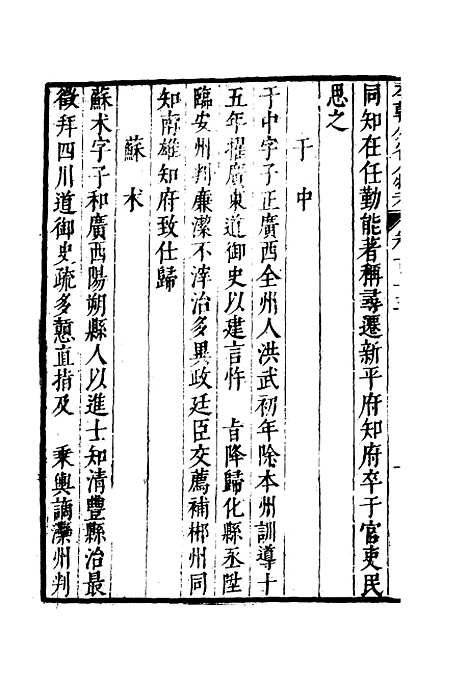 同知在任勤能著稱尋遷新平府知府卒于官吏民
思之
于中
于中字子正廣西全州人洪武初年除本州訓導十
五年擢廣東道御史以建言忤 旨降歸化縣丞陞
臨安州判廉潔不滓治多異政廷臣交薦補郴州同
知南雄知府致仕歸
蘇术
蘇术字子和廣西陽朔縣人以進士知清豐縣治最
徵拜四川道御史疏多戇直指及 乘輿謫灤州判